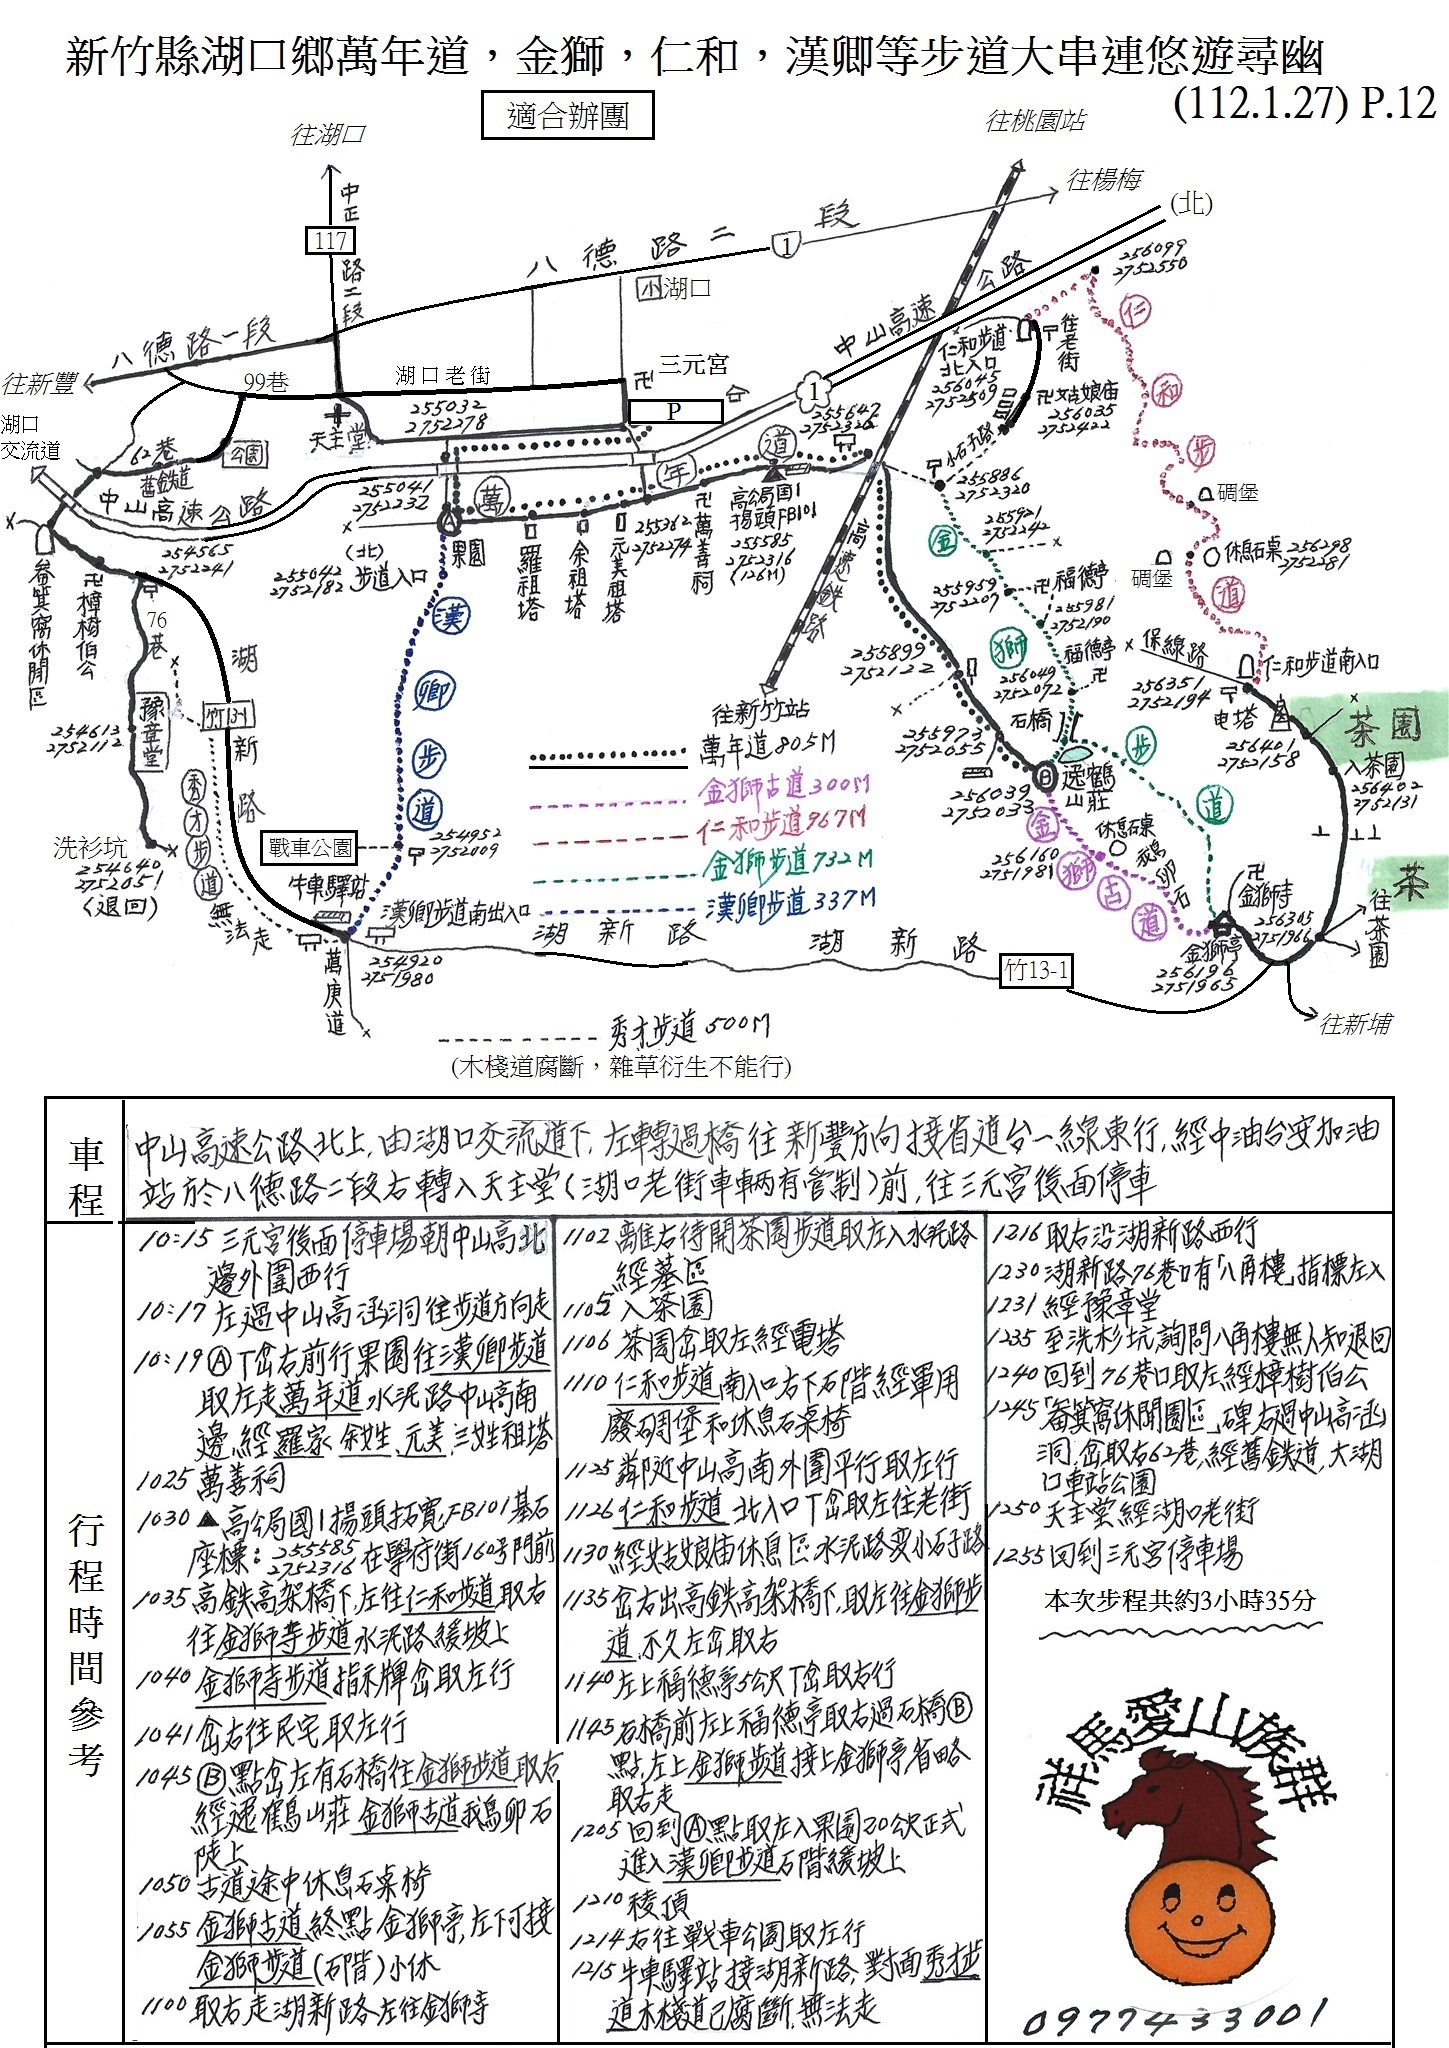 新竹縣湖口鄉萬年道，金獅，仁和，漢卿等步道大串連悠遊尋幽
(112.1.27) P.12
適合辦團
往湖口
往桃園站
往楊梅
(北)
中正路二段
117
八德路二段
1
小湖口
中山高速公路
256099
2752550
八德路一段
往新豐
99巷
湖口老街
三元宮
卍
P
1
仁和步道
北入口
256045
2752509
往老街
卍姑娘庙
256035
2752422
仁和步道
湖口
交流道
62巷
舊鉄道
公園
天主堂
255032
2752278
255647
2752326
小石子路
255886
2752320
碉堡
中山高速公路
254565
2752241
255041
2752232
萬年道
255362
2752274
卍萬善祠
高公局国1
揚頭FB101
255585
2752316
(126M)
高速鉄路
255921
2752242
碉堡
休息石桌256298
2752281
畚箕窩休閒區
卍樟樹伯公
76巷
(北)
255042
2752182
步道入口
果園
羅祖塔
余祖塔
元美祖塔
255959
2752207
卍福德亭
255981
2752190
福德亭
卍
保線路
256351
2752194
仁和步道南入口
255899
2752122
256049
2752072
石橋
电塔
256401
2752158
茶園
入茶園
256402
2752131
湖新路
竹13-1
254613
2752112
豫章堂
秀才步道
無法走
漢卿步道
往新竹站
萬年道805M
金獅古道300M
仁和步道967M
金獅步道732M
漢卿步道337M
255973
2752055
256039
2752033
B
逸鶴
山莊
金獅步道
休息石桌
鵝卵石
256160
2751981
金獅古道
茶
往茶園
洗衫坑
254640
2752051
(退回)
戰車公園
254952
2752009
牛車驛站
漢卿步道南出入口
254920
2751980
萬庚道
湖新路
湖新路
竹13-1
卍金獅寺
256305
2751966
金獅亭
256196
2751965
往新埔
秀才步道500M
(木棧道腐斷，雜草衍生不能行)
車程
中山高速公路北上,由湖口交流道下,左轉過橋往新豐方向接省道台一線東行,經中油台安加油
站於八德路二段右轉入天主堂(湖口老街車輛有管制)前,往三元宮後面停車
行程時間參考
10:15 三元宮後面停車場朝中山高北
邊外圍西行
10:17 左過中山高涵洞往步道方向走
10:19 Ⓐ丁岔右前行果園往漢卿步道
取左走萬年道水泥路中山高南
邊,經羅家,余姓,元美,三姓祖塔
1025 萬善祠
1030 ▲高公局國1揚頭拓寬FB101基石
座標:255585
2752316在學府街160号門前
1035 高鉄高架橋下,左往仁和步道取右
往金獅寺步道水泥路緩坡上
1040 金獅寺步道指示牌岔取左行
1041 岔右往民宅取左行
1045 Ⓑ點岔左有石橋往金獅步道取右
經逸鶴山莊,金獅古道鵝卵石
陡上
1050 古道途中休息石桌椅
1055 金獅古道終點金獅亭,左下可接
金獅步道(石階)小休
1100 取右走湖新路左往金獅寺
1102 離右待開茶園步道取左入水泥路
經墓區
1105 入茶園
1106 茶園岔取左經電塔
1110 仁和步道南入口右下石階經軍用
廢碉堡和休息石桌椅
1125 鄰近中山高南外圍平行取左行
1126 仁和步道北入口丁岔取左往老街
1130 經姑娘庙休息區水泥路变小石子路
1135 岔右出高鉄高架橋下,取左往金獅步
道,不久左岔取右
1140 左上福德亭5公尺丁岔取右行
1145 石橋前左上福德亭取右過石橋Ⓑ
點,左上金獅步道接上金獅亭省略
取右走
1205 回到Ⓐ點取左入果園20公尺正式
進入漢卿步道石階緩坡上
1210 稜頂
1214 右往戰車公園取左行
1215 牛車驛站接湖新路,對面秀才步
道木棧道已腐斷,無法走
1216 取右沿湖新路西行
1230 湖新路76巷口有「八角樓」指標左入
1231 經豫章堂
1235 至洗杉坑詢問八角樓無人知退回
1240 回到76巷口取左經樟樹伯公
1245 「畚箕窩休閒園區」碑右過中山高涵
洞,岔取右62巷,經舊鉄道,大湖
口車站公園
1250 天主堂經湖口老街
1255 回到三元宮停車場
本次步程共約3小時35分
祥馬愛山族群
0977433001